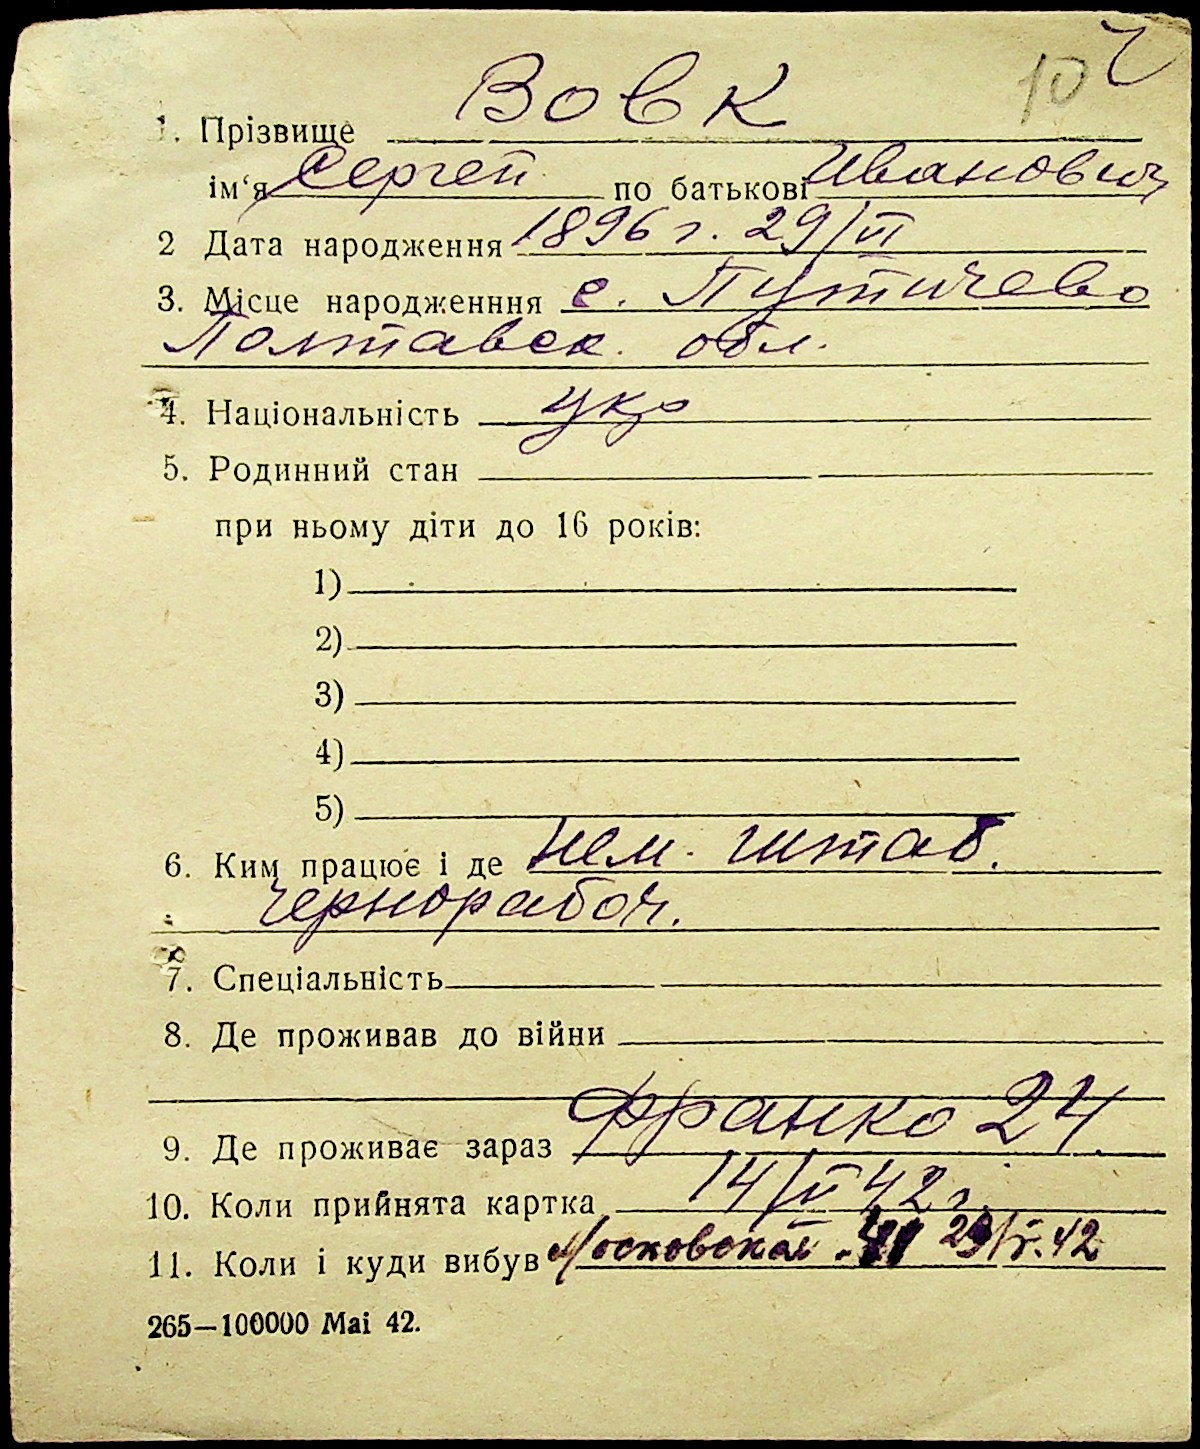 10
1. Прізвище Вовк
ім‘я Сергей по батькові Иванович
2 Дата народження 1896 г. 29/VI
3. Місце народженння с. Путичево
Полтавск. обл.
4. Національність укр
5. Родинний стан
при ньому діти до 16 років:
1)
2)
3)
4)
5)
6. Ким працює і де нем. штаб.
чернорабоч.
7. Спеціальність
8. Де проживав до війни
9. Де проживає зараз Франко 24
10. Коли прийнята картка 14/VI 42 г.
11. Коли і куди вибув Московская 42
265—100000 Mai 42.